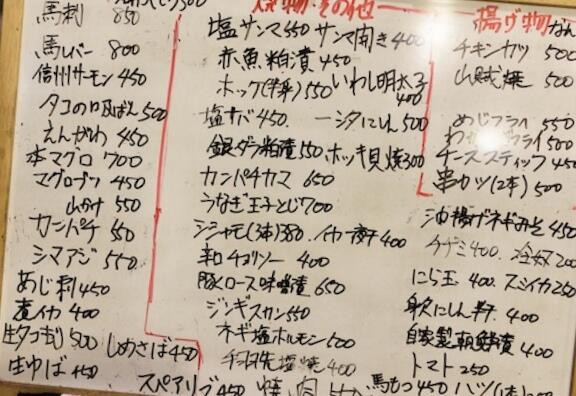 馬刺 850
馬レバー 800
信州サーモン 450
500
えんがわ 450
本マグロ 700
マグロブツ 450
山かけ 550
カンパチ 550
シマアジ 550
あじ刺 450
煮イカ 400
生タコ 500
しめさば 450
生ゆば 450
焼物・その他
塩サンマ 550 サンマ開き 400
赤魚粕漬 450
ホッケ(半身) 550 いわし明太子 400
塩サバ 450 一夕にしん 500
銀ダラ粕漬 550 ホッキ貝焼 300
カンパチカマ 650
うなぎ玉子とじ 700
シシャモ(3本) 380 イカ一夜干 400
チョリソー 400
豚ロース味噌漬 650
ジンギスカン 550
ネギ塩ホルモン 500
手羽先塩焼 400
スペアリブ 450
揚げ物
チキンカツ 500
山賊焼 500
あじフライ 550
わかさぎフライ 500
チーズスティック 450
串カツ(2本) 500
油揚げネギみそ 450
400 冷奴 200
にら玉 400 スミイカ 250
身欠にしん 400
自家製朝鮮漬 400
トマト 250
馬もつ 450 ハツ